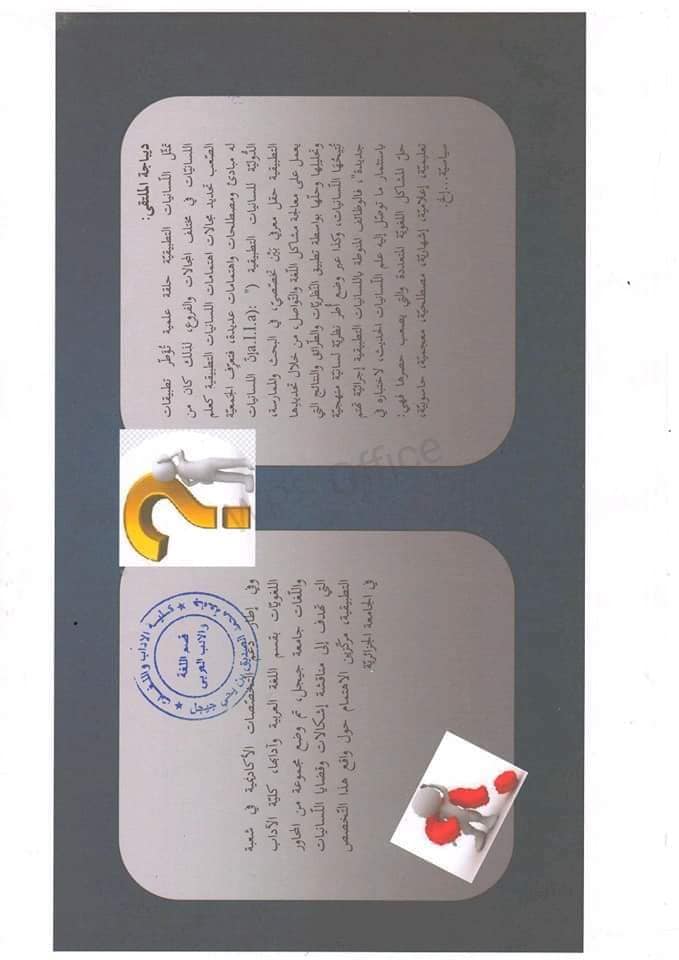 ديباجة الملتقى:
تمثّل اللسانيات التطبيقيّة حلقة علمية تُؤطّر تطبيقات
اللسانيّات في مختلف المجالات والفروع، لذلك كان من
الصّعب تحديد مجالات اهتمامات اللسانيات التطبيقية كعلم
له مبادئ ومصطلحات واهتمامات عديدة، فتعرّف الجمعيّة
الدّوليّة للسانيات التطبيقية ( a.l.l.a): "إنّ اللسانيات
التطبيقية حقل معرفي بَيْن تخصّصيّ، في البحث والممارسة،
يعمل على معالجة مشاكل اللّغة والتّواصل، من خلال تحديدها
وتحليلها وحلّها بواسطة تطبيق النّظريّات والطّرائق والنتائج التي
تُتيحُها اللّسانيات، وكذا عبر وضع أُطر نظريّة لسانيّة منهجيّة
جديدة"، فالوظائف المنوطة باللسانيات التطبيقية إجرائيّة تهتم
باستثمار ما توصّل إليه علم اللّسانيات الحديث، لاختباره في
حلّ المشاكل اللغويّة المتعددة والتي يصعب حصرها فهي:
تعليميّة، إعلاميّة، إشهاريّة، مصطلحيّة، معجميّة، حاسوبيّة،
سياسيّة...إلخ.
وفي إطار دعم التخصّصات الأكاديمية في شعبة
اللغويّات بقسم اللغة العربية وآدابها، كليّة الآداب
واللّغات جامعة جيجل، تم وضع مجموعة من المحاور
التي تهدف إلى مناقشة إشكالات وقضايا اللّسانيات
التطبيقية، مركّزين الاهتمام حول واقع هذا التّخصص
في الجامعة الجزائريّة
كلية الآداب واللغات
قسم اللغة
والأدب العربي
WPS Office